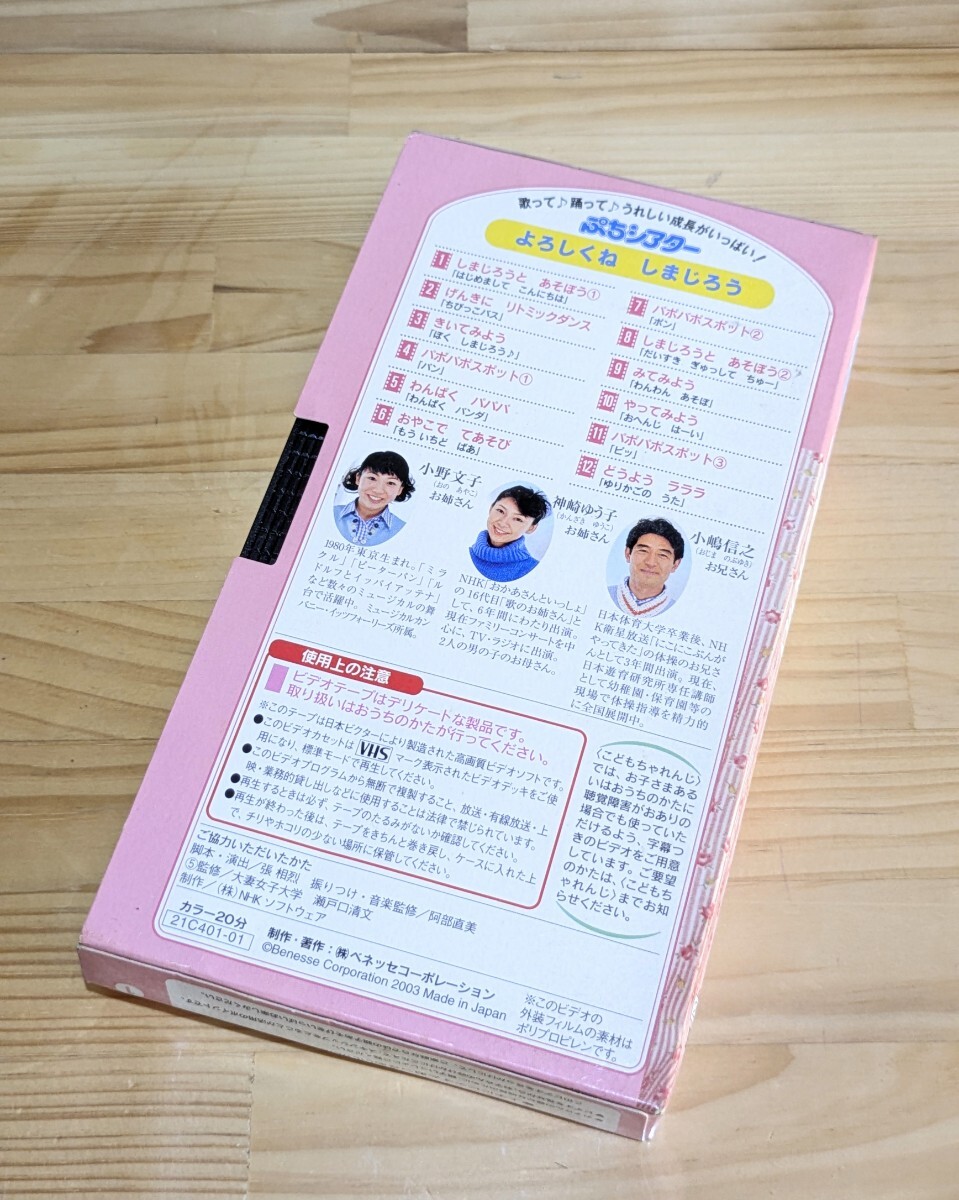 歌って♪踊って♪うれしい成長がいっぱい!
ぷちシアター
よろしくね しまじろう
1 しまじろうと あそぼう①
「はじめまして こんにちは」
2 げんきに リトミックダンス
「ちびっこバス」
3 きいてみよう
「ぼく しまじろう♪」
4 パポパポスポット①
「パン」
5 わんぱく パパパ
「わんぱく パンダ」
6 おやこで てあそび
「もう いちど ばあ」
7 パポパポスポット②
「ポン」
8 しまじろうと あそぼう②
「だいすき ぎゅっして ちゅー」
9 みてみよう
「わんわん あそぼ」
10 やってみよう
「おへんじ はーい」
11 パポパポスポット③
「ピッ」
12 どうよう ラララ
「ゆりかごの うた」
小野文子
(おの あやこ)
お姉さん
1980年東京生まれ。「ミラ
クル」「ピーターパン」「ル
ドルフとイッパイアッテナ」
など数々のミュージカルの舞
台で活躍中。ミュージカルカン
パニー・イッツフォーリーズ所属。
神崎ゆう子
(かんざき ゆうこ)
お姉さん
NHK「おかあさんといっしょ」
の16代目「歌のお姉さん」と
して、6年間にわたり出演。
現在ファミリーコンサートを中
心に、TV・ラジオに出演。
2人の男の子のお母さん。
小嶋信之
(おじま のぶゆき)
お兄さん
日本体育大学卒業後、NH
K衛星放送「にこにこぷんが
やってきた」の体操のお兄さ
んとして3年間出演。現在、
日本遊育研究所専任講師
として幼稚園・保育園等の
現場で体操指導を精力的
に全国展開中。
使用上の注意
ビデオテープはデリケートな製品です。
取り扱いはおうちのかたが行ってください。
※このテープは日本ビクターにより製造された高画質ビデオソフトです。
●このビデオカセットは VHS マーク表示されたビデオデッキをご使
用になり、標準モードで再生してください。
●このビデオプログラムから無断で複製すること、放送・有線放送・上
映・業務的貸し出しなどに使用することは法律で禁じられています。
●再生するときは必ず、テープのたるみがないか確認してください。
●再生が終わった後は、テープをきちんと巻き戻し、ケースに入れた上
で、チリやホコリの少ない場所に保管してください。
〈こどもちゃれんじ〉
では、お子さまある
いはおうちのかたに
聴覚障害がおありの
場合でも使っていた
だけるよう、字幕つ
きのビデオをご用意
しています。ご要望
のかたは、〈こどもち
ゃれんじ〉までお知
らせください。
ご協力いただいたかた
脚本・演出/張 相烈 振りつけ・音楽監修/阿部直美
⑤監修/大妻女子大学 瀬戸口清文
制作/(株)NHKソフトウェア
カラー20分
21C401-01
制作・著作:㈱ベネッセコーポレーション
©Benesse Corporation 2003 Made in Japan
※このビデオの
外装フィルムの素材は
ポリプロピレンです。